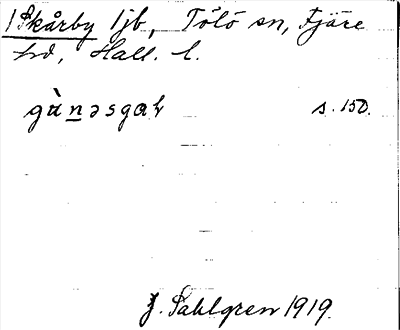 1 Skårby 1jb, Tölö sn, Fjäre
hd, Hall. l.
gùnəsgaʜ s. 150.
J. Sahlgren 1919.